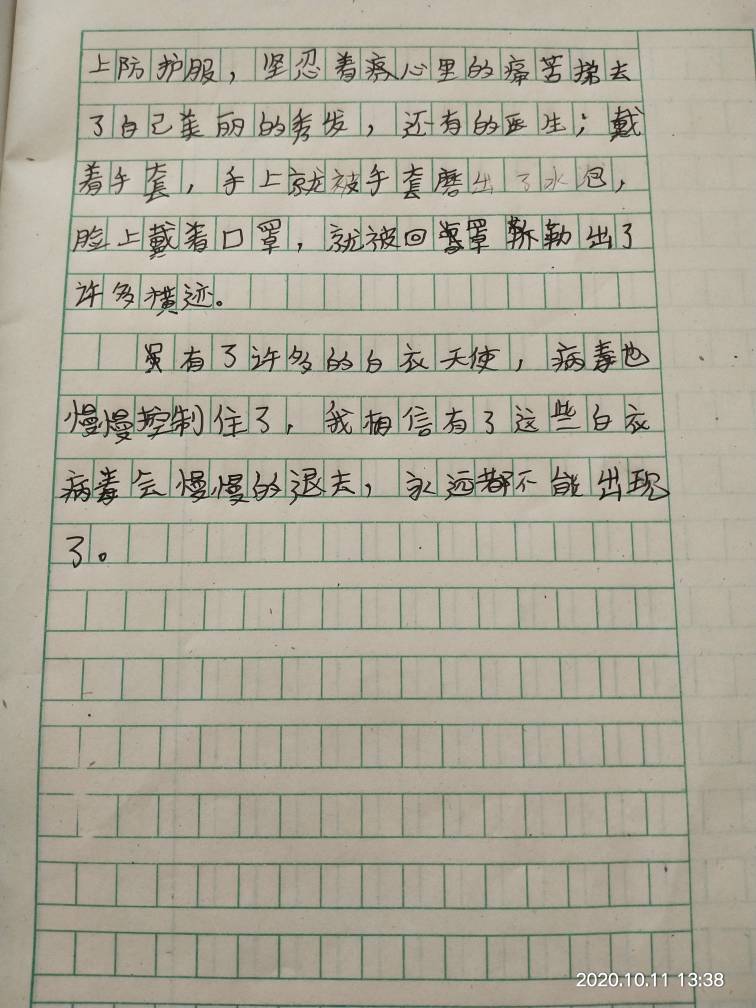 上防护服，坚忍着疼心里的痛苦剃去
了自己美丽的秀发，还有的医生；戴
着手套，手上就被手套磨出了水泡，
脸上戴着口罩，就被回罩勒出了
许多横迹。
虽有了许多的白衣天使，病毒也
慢慢控制住了，我相信有了这些白衣
病毒会慢慢的退去，永远都不能出现
了。
2020.10.11 13:38